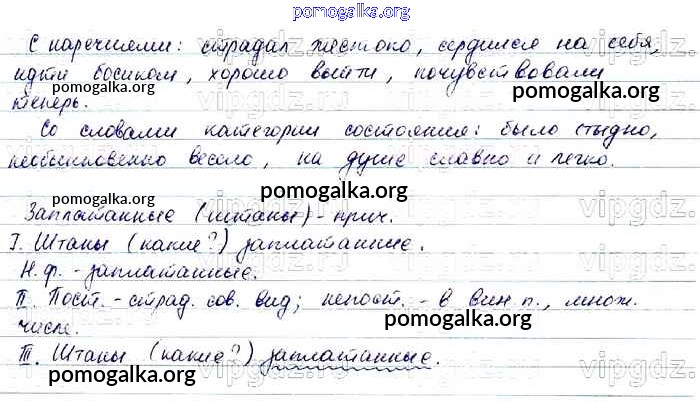 pomogalka.org
С наречиями: страдал жестоко, сердился на себя,
идти босиком, хорошо выйти, почувствовали
pomogalka.org
pomogalka.org
теперь.
vipgdz.ru
Со словами категории состояния: было стыдно,
необыкновенно весело, на душе славно и легко.
pomogalka.org
pomogalka.org
Заплатанные (штаны) - прич.
vipgdz.ru
I. Штаны (какие?) заплатанные.
Н.ф. - заплатанные.
II. Пост. - страд. сов. вид; непост. - в вин.п., множ.
числе.
pomogalka.org
III. Штаны (какие?) заплатанные.
pomogalka.org
vipgdz.ru